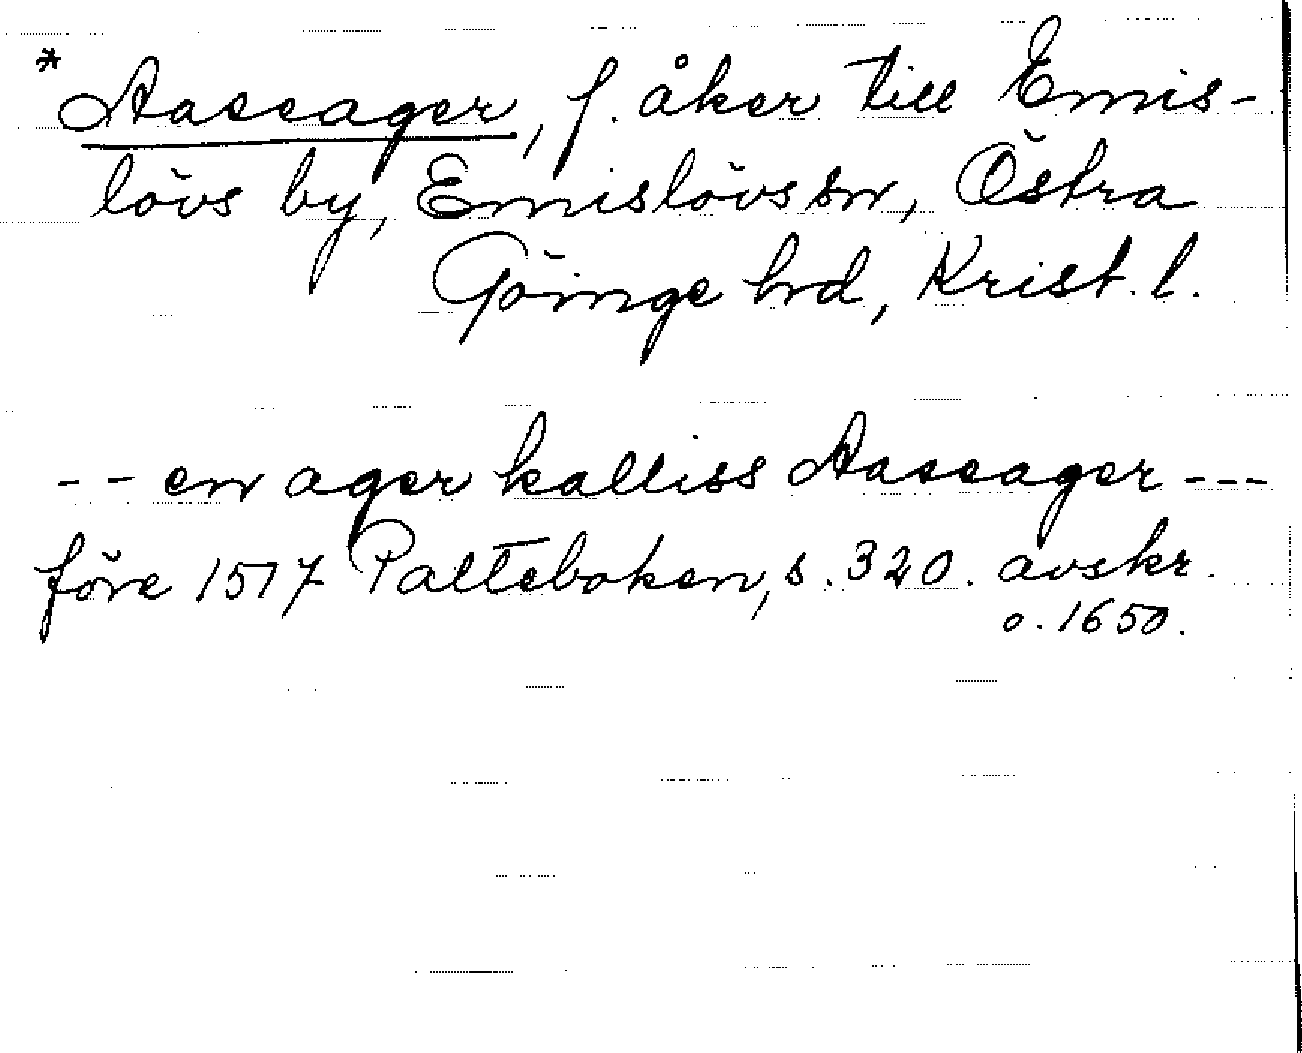 * Aaseager, f. åker till Emis-
lövs by, Emislövs sn, Östra
Göinge hd, Krist. l.
-- en ager kalliss Aaseager ---
före 1517 Palteboken, s. 320. avskr.
o. 1650.